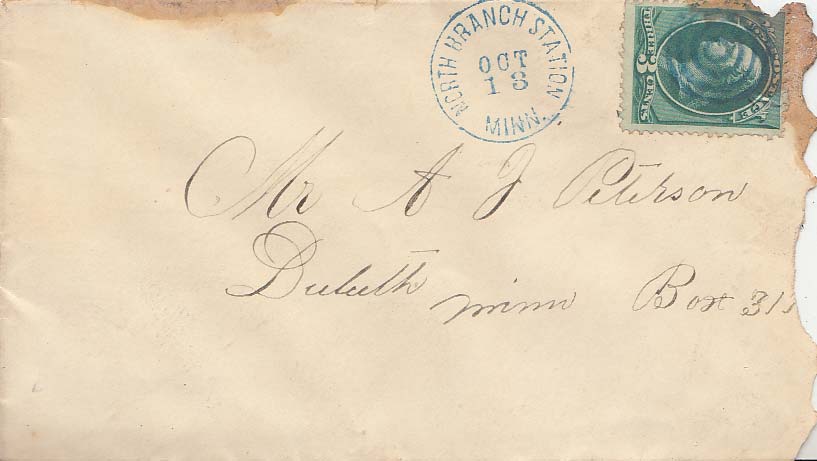 NORTH BRANCH STATION
OCT
13
MINN.
3
CENTS
Mr A J Peterson
Duluth Minn Box 311